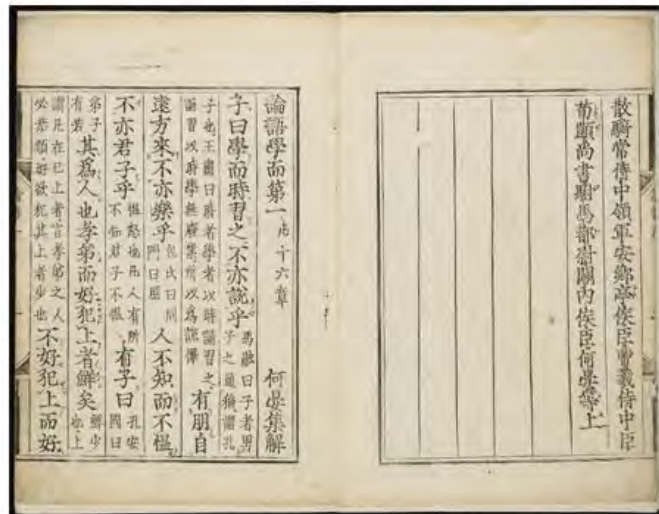 散騎常侍中領軍安鄉亭侯臣曹羲侍中臣
荀顗尚書駙馬都尉關內侯臣何晏等上
論語學而第一 凡十六章 何晏集解
子曰學而時習之不亦說乎 馬融曰子者男子之通稱謂孔
子也王肅曰時者學者以時誦習之誦習以時學無廢業所以爲說懌 有朋自
遠方來不亦樂乎 包氏曰同門曰朋 人不知而不慍
不亦君子乎 慍怒也凡人有所不知君子不慍 有子曰 孔安國曰
弟子有若 其爲人也孝弟而好犯上者鮮矣 鮮少也上
謂凡在己上者言孝弟之人必恭順好欲犯其上者少也 不好犯上而好